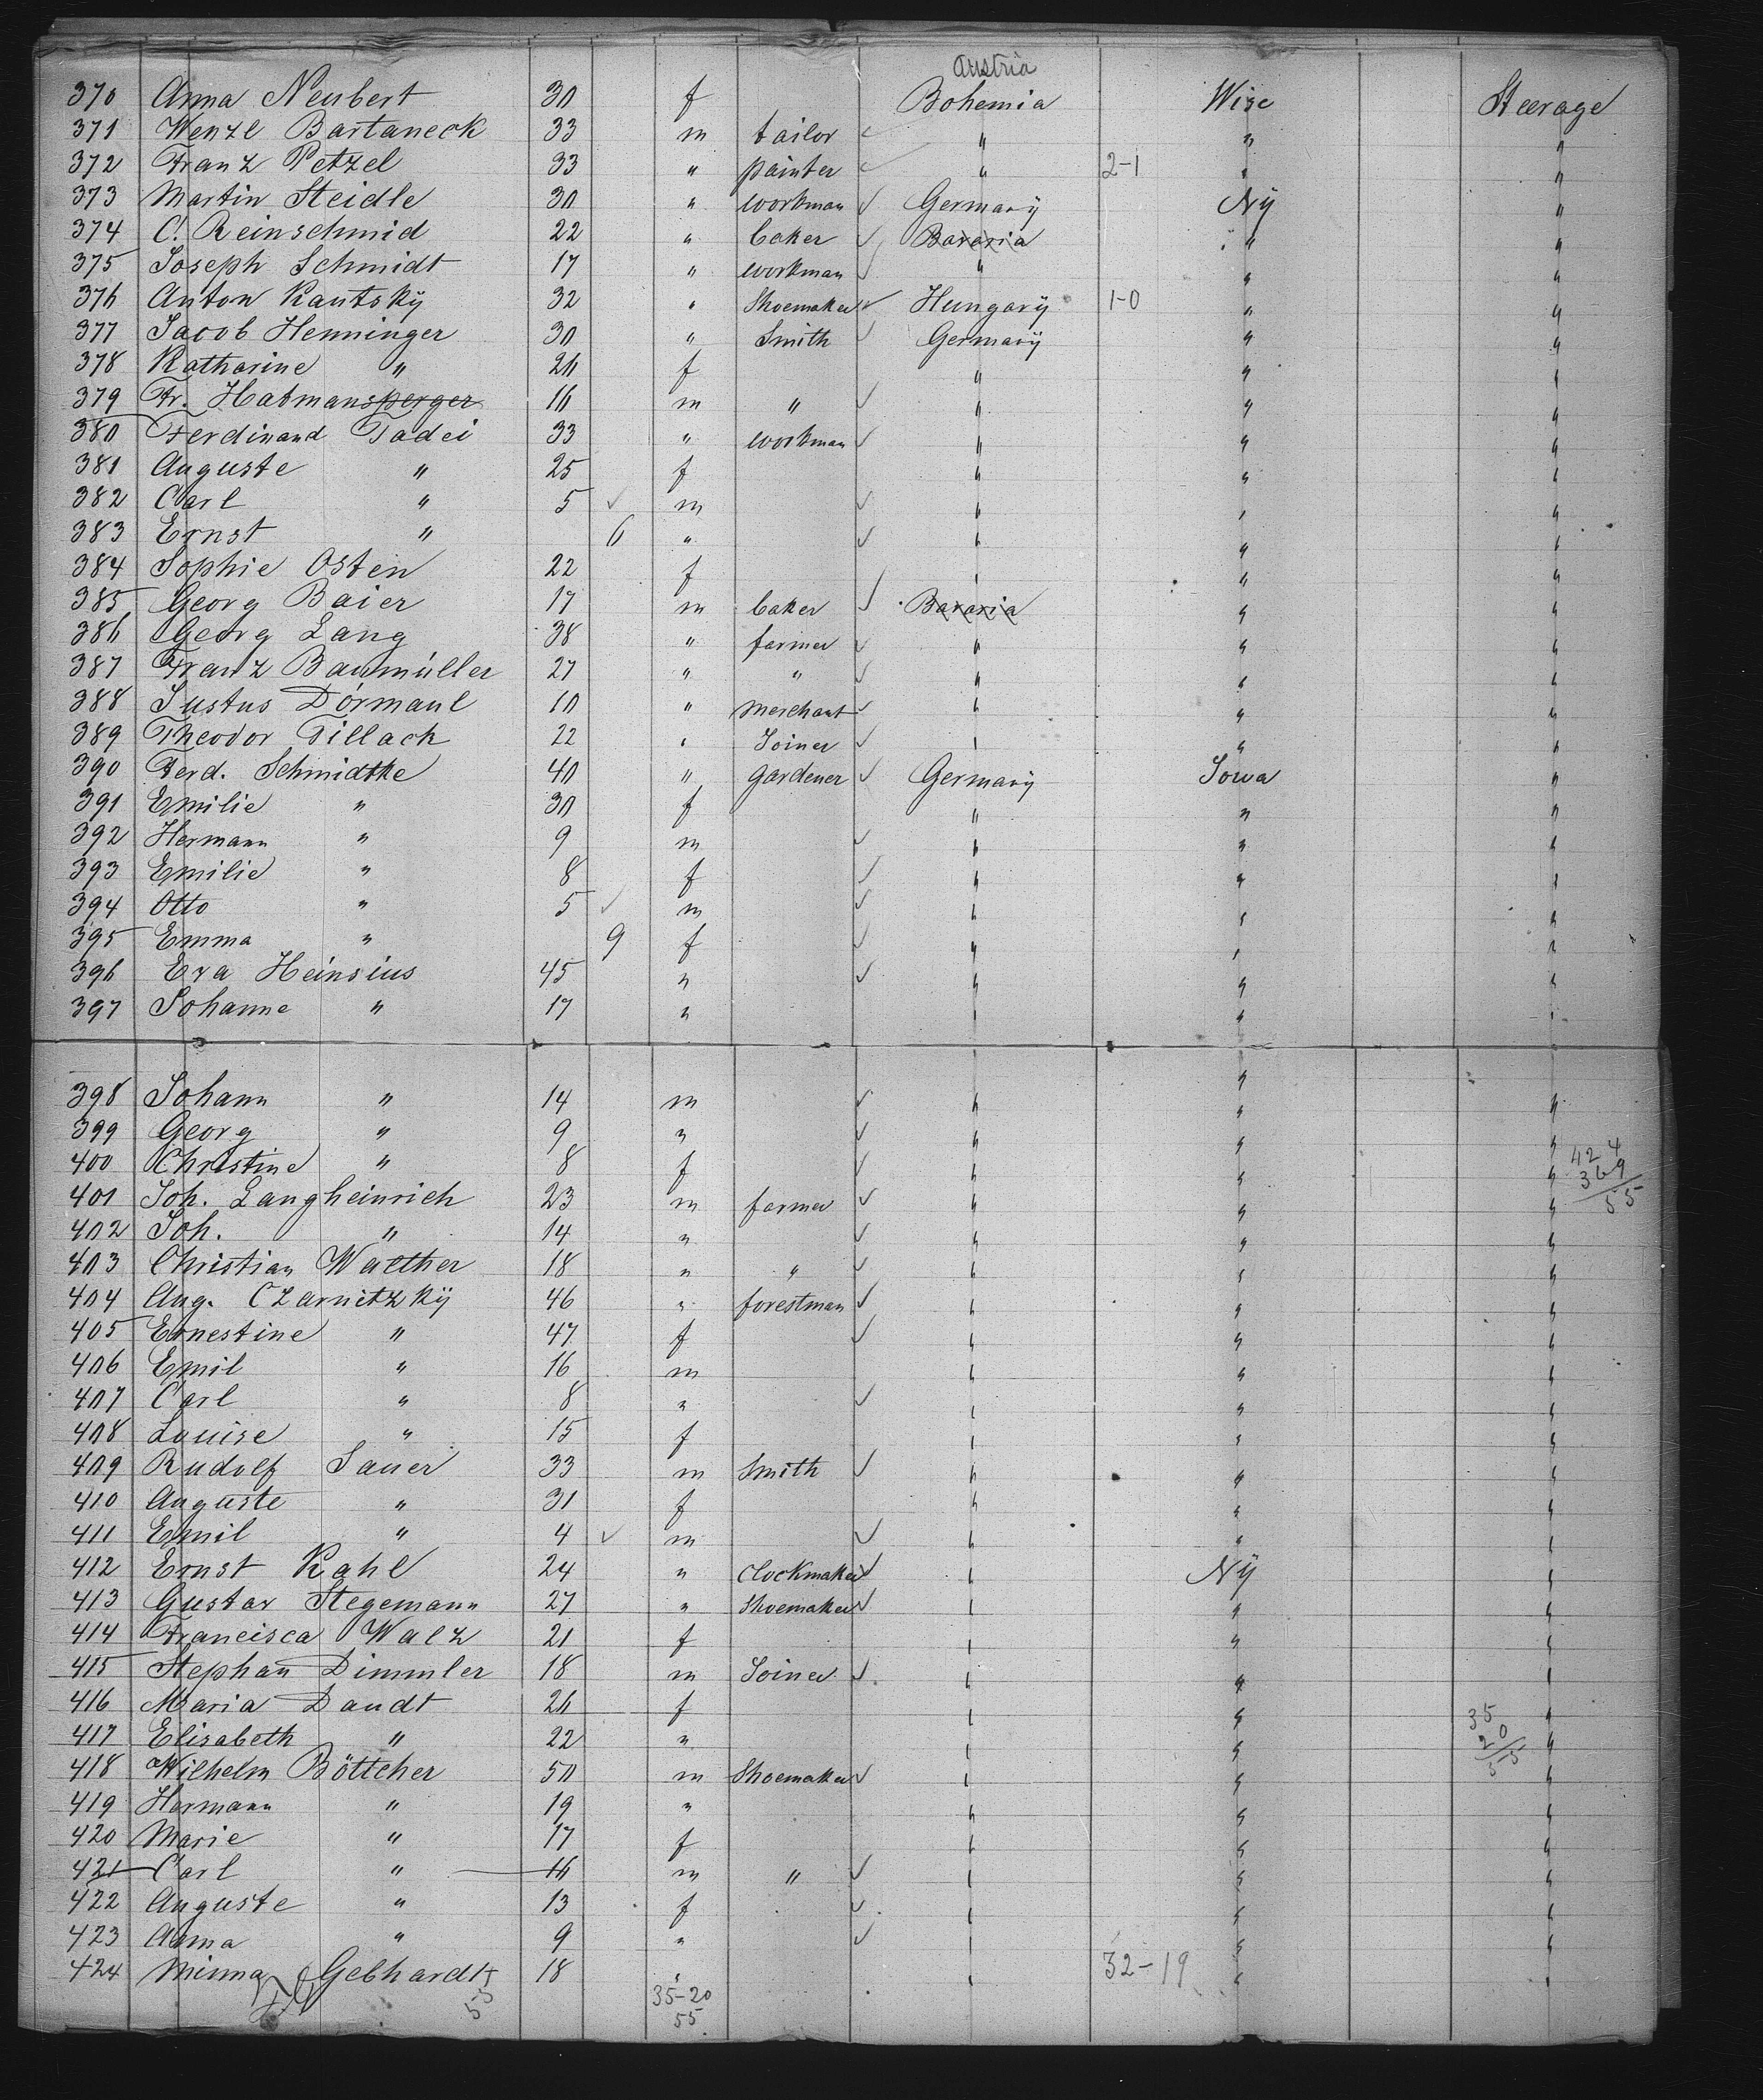 Austria
370 Anna Neubert 30 f Bohemia Wisc Steerage
371 Wenzl Bartaneck 33 m tailor " " "
372 Franz Petzel 33 " painter " 2-1 " "
373 Martin Steidle 30 " workman Germany Ny "
374 C. Reinschmid 22 " baker Bavaria " "
375 Joseph Schmidt 17 " workman " " "
376 Anton Kautsky 32 " Shoemaker Hungary 1-0 " "
377 Jacob Henninger 30 " Smith Germany " "
378 Katharine " 26 f " " "
379 Fr. Hatmansperger 16 m " " " "
380 Ferdinand Tadei 33 " workman " " "
381 Auguste " 25 f " " "
382 Carl " 5 m " " "
383 Ernst " 6 " " " "
384 Sophie Osten 22 f " " "
385 Georg Baier 17 m baker Bavaria " "
386 Georg Lang 38 " farmer " " "
387 Franz Baumüller 27 " " " " "
388 Justus Dórmaul 10 " merchant " " "
389 Theodor Tillack 22 " Joiner " " "
390 Ferd. Schmidtke 40 " gardener Germany Iowa "
391 Emilie " 30 f " " "
392 Hermann " 9 m " " "
393 Emilie " 8 f " " "
394 Otto " 5 m " " "
395 Emma " 9 f " " "
396 Eva Heinsius 45 " " " "
397 Johanne " 17 " " " "
398 Johann " 14 m " " "
399 Georg " 9 " " " "
400 Christine " 8 f " " " 424
369
55
401 Joh. Langheinrich 23 m farmer " " "
402 Joh. " 14 " " " "
403 Christian Walther 18 " " " " "
404 Aug. Czarnitzky 46 " forestman " " "
405 Ernestine " 47 f " " "
406 Emil " 16 m " " "
407 Carl " 8 " " " "
408 Louise " 15 f " " "
409 Rudolf Sauer 33 m Smith " " "
410 Auguste " 31 f " " "
411 Emil " 4 m " " "
412 Ernst Kahl 24 " Clockmaker " Ny "
413 Gustav Stegemann 27 " Shoemaker " " "
414 Francisca Walz 21 f " " "
415 Stephan Dimmler 18 m Joiner " " "
416 Maria Daudt 26 f " " "
417 Elisabeth " 22 " " " " 35
20
55
418 Wilhelm Böttcher 50 m Shoemaker " " "
419 Hermann " 19 " " " "
420 Marie " 17 f " " "
421 Carl " 16 m " " " "
422 Auguste " 13 f " " "
423 Anna " 9 " " " "
424 Minna Gebhardt 18 " " 32-19 " "
55 35-20
55